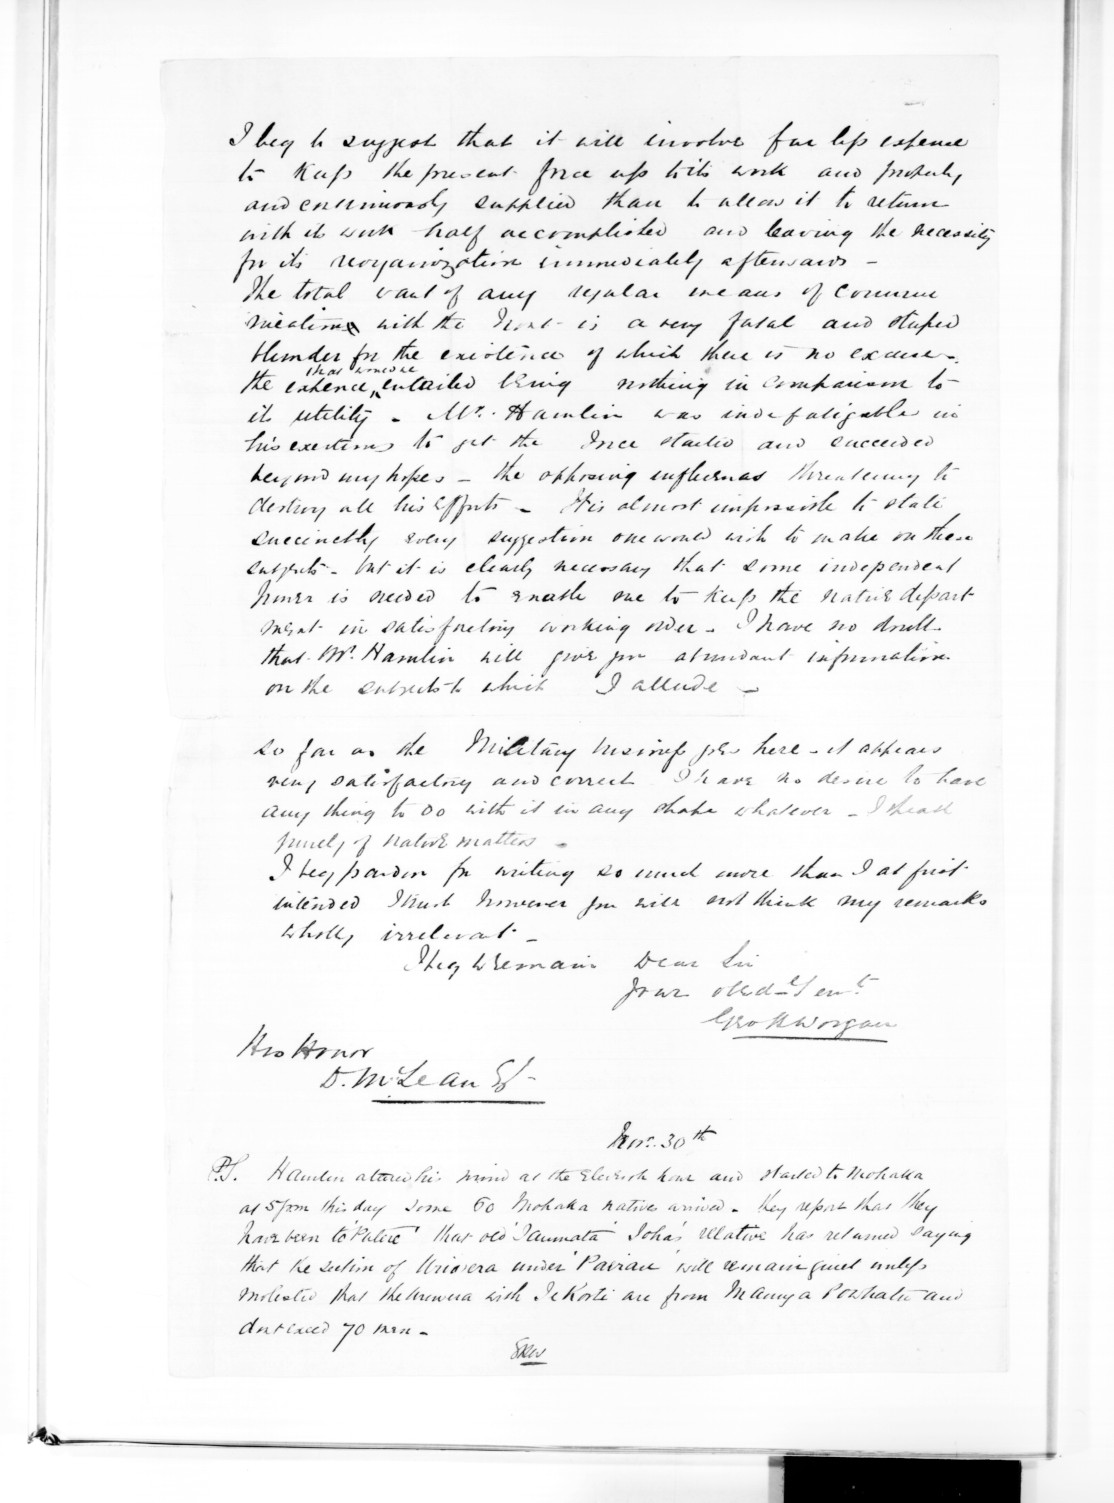 I beg to suggest that it will involve far less expense
to keep the present force up to its work and properly
and continuously supplied than to allow it to return
with its work half accomplished and leaving the necessity
for its reorganization immediately afterwards -
The total want of any regular means of commu
nication with the Front is a very fatal and stupid
blunder for the existence of which there is no excuse -
that would be
the expence entailed being nothing in comparison to
its utility - Mr. Hamlin was indefatigable in
his exertions to get the Force started and succeeded
beyond my hopes - the opposing influences threatening to
destroy all his efforts - It is almost impossible to state
succinctly every suggestion one would wish to make on these
subjects - but it is clearly necessary that some independent
power is needed to enable me to keep the native depart
ment in satisfactory working order - I have no doubt
that Mr. Hamlin will give you abundant information
on the subjects to which I allude -
so far as the Military business goes here - it appears
very satisfactory and correct I have no desire to have
any thing to do with it in any shape whatever - I speak
purely of native matters -
I beg pardon for writing so much more than I at first
intended I trust however you will not think my remarks
wholly irrelevant -
I beg to remain Dear Sir
your obed. Servt.
Geo H Worgan
His Honor
D. McLean Esq
Nov. 30th
P.S. Hamlin altered his mind at the eleventh hour and started to Mohaka
at 5 pm this day some 60 Mohaka natives arrived - they report that they
have been to 'Putere' that old 'Taumata' Ioha's relative has returned saying
that the section of Uriwera under will remain quiet unless
molested that the Urewera with Te Kooti are from Maunga Powhatu and
dont exceed 70 men -